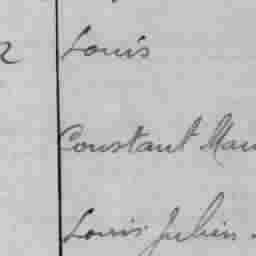 Louis
Constant Mau
Louis Julien